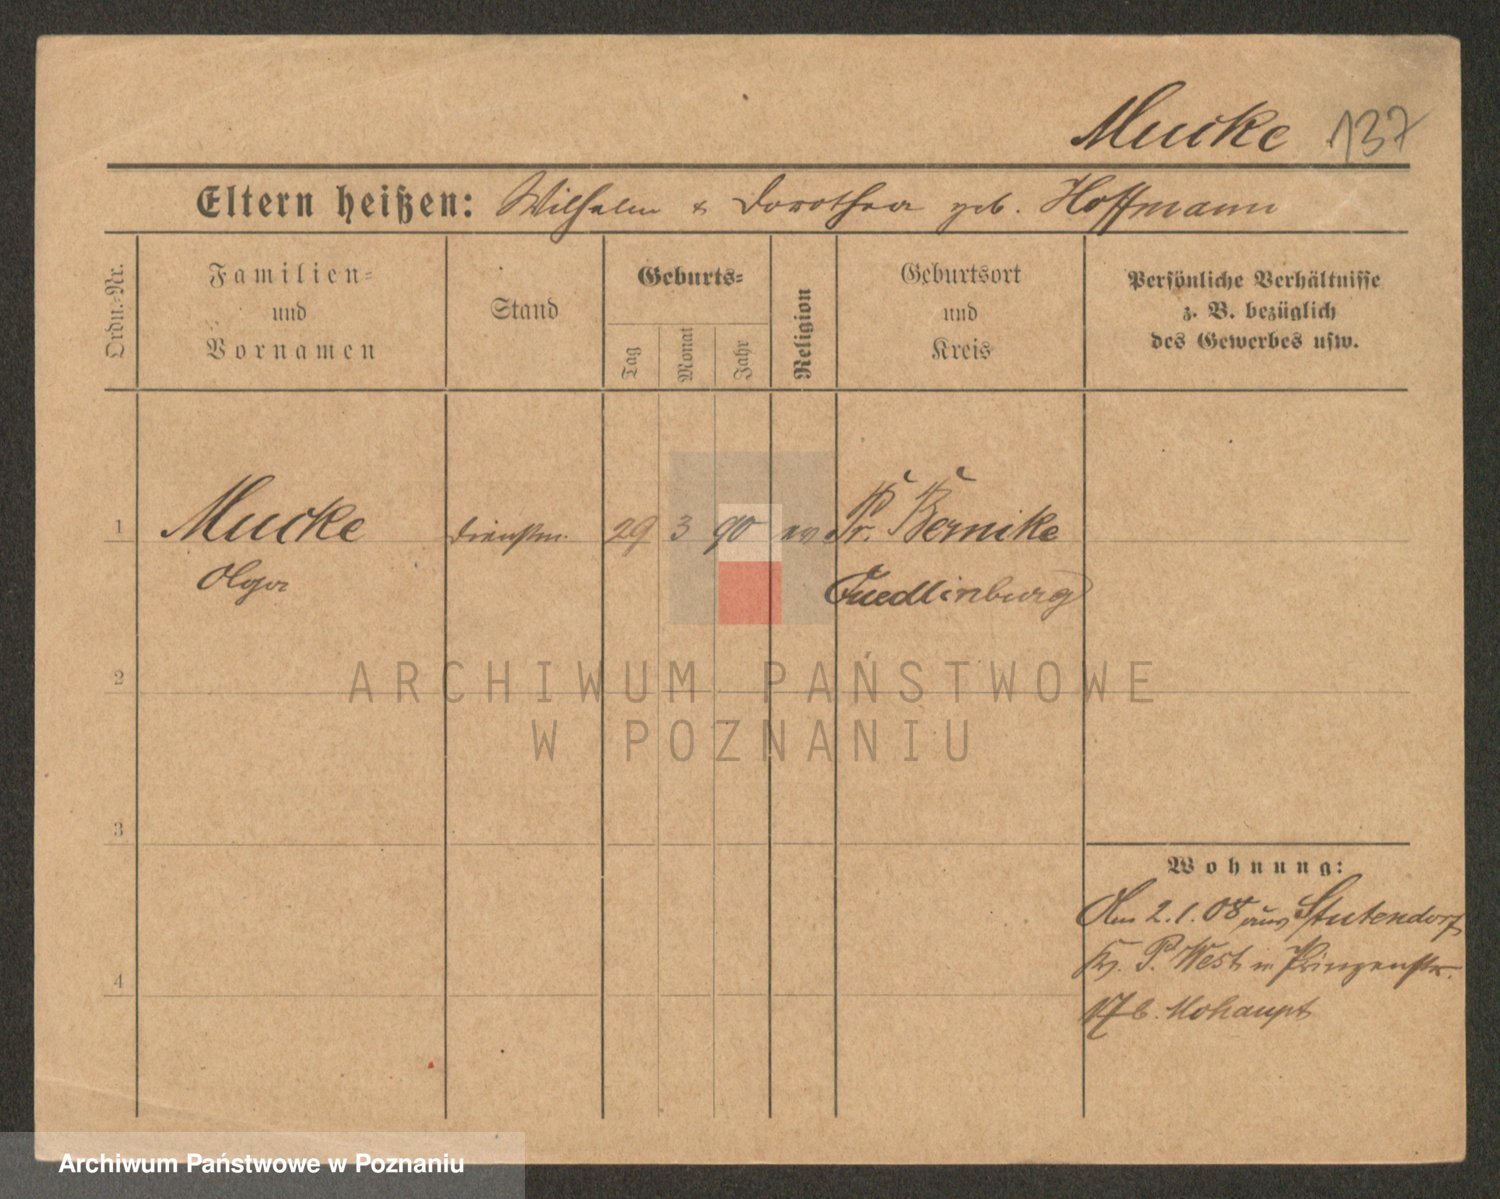 Mucke 137
Eltern heißen: Wilhelm & Dorothea geb. Hoffmann
Ordn.-Nr.
Familien-
und
Vornamen
Stand
Geburts-
Tag
Monat
Jahr
Religion
Geburtsort
und
Kreis
Persönliche Verhältnisse
z. B. bezüglich
des Gewerbes usw.
1
Mucke
Olga
Dienstm.
29 3 90
ev
Kr. Bernike
Quedlinburg
2
ARCHIWUM PAŃSTWOWE
W POZNANIU
3
4
Wohnung:
Am 2.1.08 aus Stutendorf
Kr. P. West in Prinzenstr.
17 b. Mohaupt
Archiwum Państwowe w Poznaniu